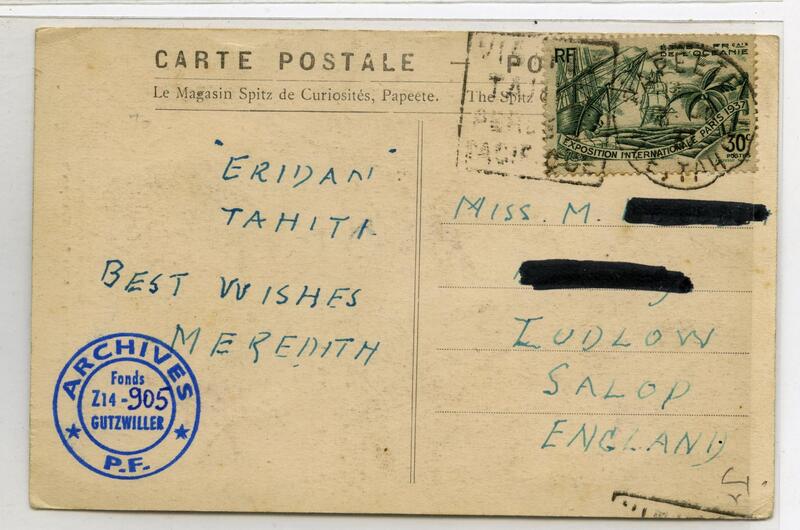 CARTE POSTALE — PO
Le Magasin Spitz de Curiosités, Papeete. The Spitz
RF
ÉTABts FRçais
DE L'OCÉANIE
EXPOSITION INTERNATIONALE PARIS 1937
30c
POSTES
PAPEETE
TAH
"ERIDAN"
TAHITI
BEST WISHES
MEREDITH
MISS. M.
LUDLOW
SALOP
ENGLAND
ARCHIVES
Fonds
Z14-905
GUTZWILLER
P.F.